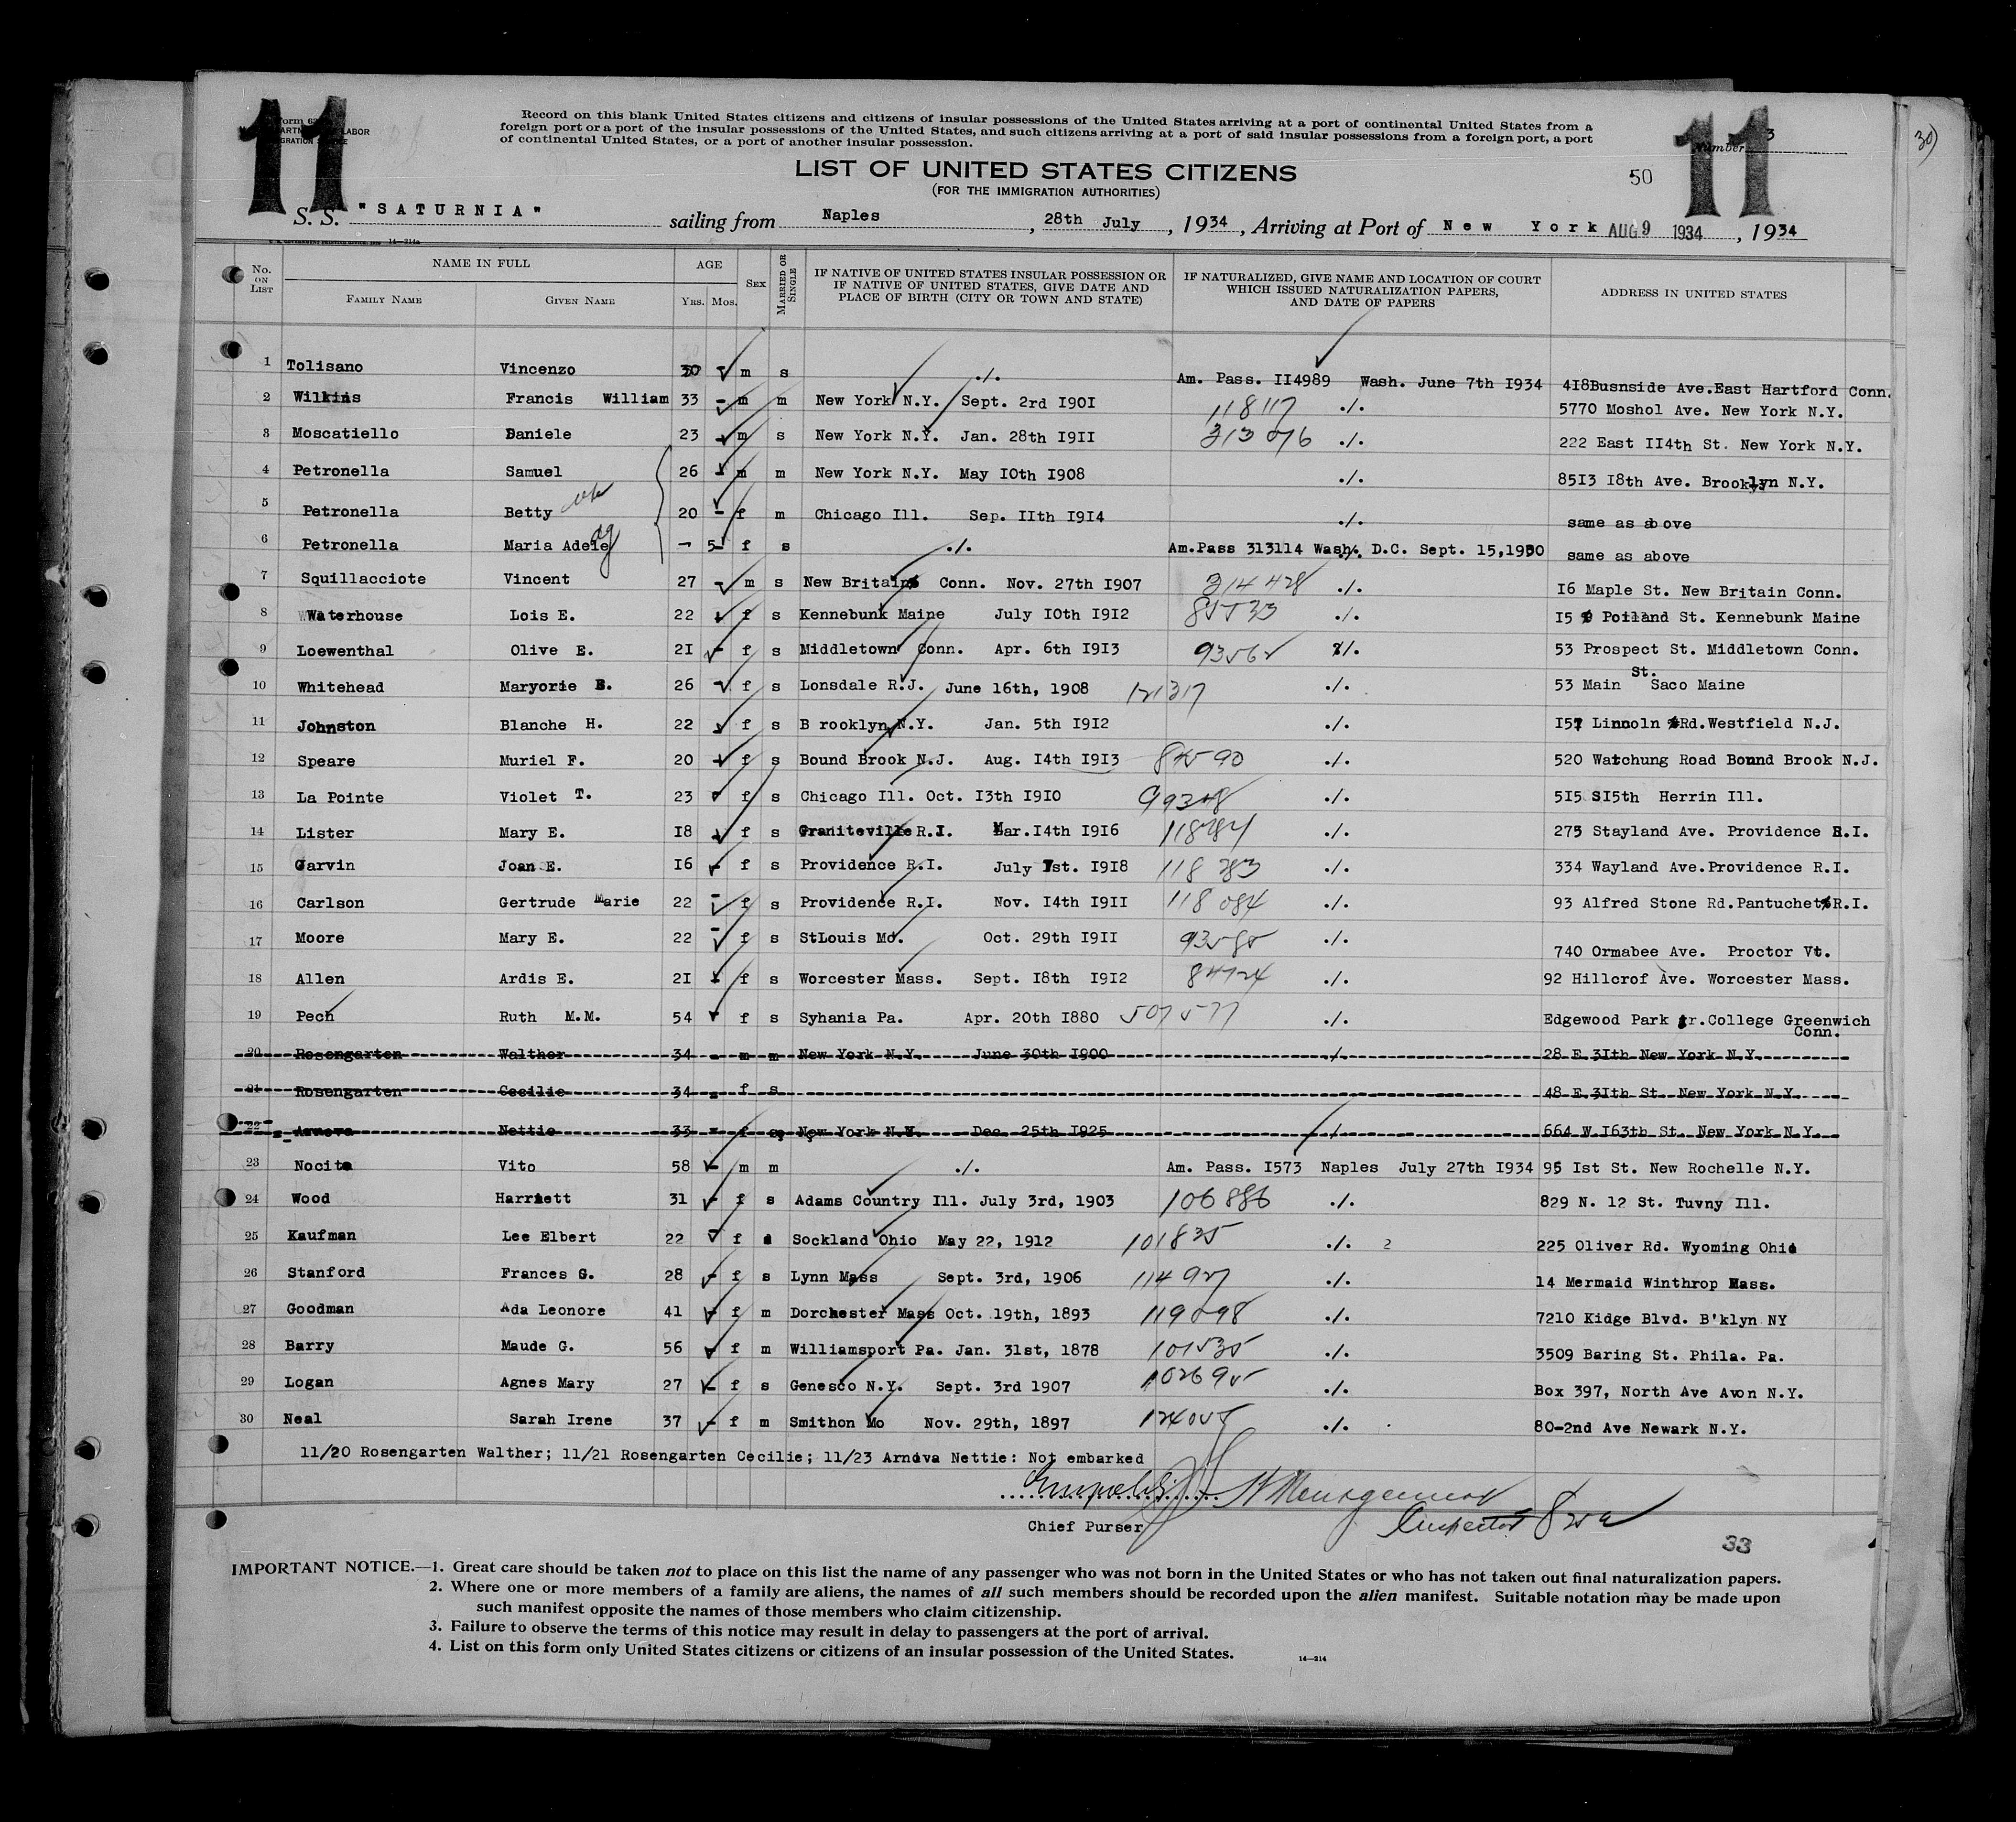 11
11
Record on this blank United States citizens and citizens of insular possessions of the United States arriving at a port of continental United States from a
foreign port or a port of the insular possessions of the United States, and such citizens arriving at a port of said insular possessions from a foreign port, a port
of continental United States, or a port of another insular possession.
Number 3
30)
LIST OF UNITED STATES CITIZENS
(FOR THE IMMIGRATION AUTHORITIES)
50
S. S. "SATURNIA" sailing from Naples, 28th July, 1934, Arriving at Port of New York AUG 9 1934, 1934
No. ON LIST NAME IN FULL FAMILY NAME GIVEN NAME AGE YRS. MOS. SEX MARRIED OR SINGLE
IF NATIVE OF UNITED STATES INSULAR POSSESSION OR IF NATIVE OF UNITED STATES, GIVE DATE AND PLACE OF BIRTH (CITY OR TOWN AND STATE)
IF NATURALIZED, GIVE NAME AND LOCATION OF COURT WHICH ISSUED NATURALIZATION PAPERS, AND DATE OF PAPERS
ADDRESS IN UNITED STATES
1 Tolisano Vincenzo 30 - m s ./. Am. Pass. II4989 Wash. June 7th I934 4I8Busnside Ave.East Hartford Conn.
2 Wilkins Francis William 33 - m m New York N.Y. Sept. 2rd I90I 118117 ./. 5770 Moshol Ave. New York N.Y.
3 Moscatiello Daniele 23 - m s New York N.Y. Jan. 28th I9II 313076 ./. 222 East II4th St. New York N.Y.
4 Petronella Samuel 26 - m m New York N.Y. May I0th I908 ./. 85I3 I8th Ave. Brooklyn N.Y.
5 Petronella Betty 20 - f m Chicago Ill. Sep. IIth I9I4 ./. same as above
6 Petronella Maria Adele - 5 f s ./. Am.Pass 313114 Wash. D.C. Sept. 15,1930 same as above
7 Squillacciote Vincent 27 - m s New Britain Conn. Nov. 27th I907 314428 ./. I6 Maple St. New Britain Conn.
8 Waterhouse Lois E. 22 - f s Kennebunk Maine July I0th I9I2 85533 ./. I5 Poiland St. Kennebunk Maine
9 Loewenthal Olive E. 2I - f s Middletown Conn. Apr. 6th I9I3 ./. 53 Prospect St. Middletown Conn.
10 Whitehead Maryorie E. 26 - f s Lonsdale R.J. June 16th, 1908 121317 ./. 53 Main St. Saco Maine
11 Johnston Blanche H. 22 - f s B rooklyn N.Y. Jan. 5th I9I2 ./. I57 Linnoln Rd.Westfield N.J.
12 Speare Muriel F. 20 - f s Bound Brook N.J. Aug. I4th I9I3 84590 ./. 520 Watchung Road Bound Brook N.J.
13 La Pointe Violet T. 23 - f s Chicago Ill. Oct. I3th I9I0 ./. 5I5 SI5th Herrin Ill.
14 Lister Mary E. I8 - f s Graniteville R.I. Mar.I4th I9I6 ./. 275 Stayland Ave. Providence R.I.
15 Garvin Joan E. I6 - f s Providence R.I. July 1st. I9I8 118383 ./. 334 Wayland Ave.Providence R.I.
16 Carlson Gertrude Marie 22 - f s Providence R.I. Nov. I4th I9II 118084 ./. 93 Alfred Stone Rd.Pantuchet R.I.
17 Moore Mary E. 22 - f s StLouis Mo. Oct. 29th I9II ./. 740 Ormabee Ave. Proctor Vt.
18 Allen Ardis E. 2I - f s Worcester Mass. Sept. I8th I9I2 84724 ./. 92 Hillcrof Ave. Worcester Mass.
19 Pech Ruth M.M. 54 - f s Syhania Pa. Apr. 20th I880 507577 ./. Edgewood Park Jr.College Greenwich Conn.
20 Rosengarten Walther 34 - m m New York N.Y. June 30th I900 ./. 28 E 3Ith New York N.Y.
21 Rosengarten Cecilie 34 - f s 48 E 3Ith St. New York N.Y.
22 Nettie 33 - f s New York N.Y. Dec. 25th I925 664 W I63th St. New York N.Y.
23 Nocita Vito 58 - m m ./. Am. Pass. I573 Naples July 27th I934 95 Ist St. New Rochelle N.Y.
24 Wood Harriett 31 - f s Adams Country Ill. July 3rd, 1903 106886 ./. 829 N. 12 St. Tuvny Ill.
25 Kaufman Lee Elbert 22 - f s Sockland Ohio May 22, 1912 101835 ./. 2 225 Oliver Rd. Wyoming Ohio
26 Stanford Frances G. 28 - f s Lynn Mass Sept. 3rd, 1906 114927 ./. 14 Mermaid Winthrop Mass.
27 Goodman Ada Leonore 41 - f m Dorchester Mass Oct. 19th, 1893 119098 ./. 7210 Kidge Blvd. B'klyn NY
28 Barry Maude G. 56 - f m Williamsport Pa. Jan. 31st, 1878 101535 ./. 3509 Baring St. Phila. Pa.
29 Logan Agnes Mary 27 - f s Genesco N.Y. Sept. 3rd 1907 102695 ./. Box 397, North Ave Avon N.Y.
30 Neal Sarah Irene 37 - f m Smithon Mo Nov. 29th, 1897 ./. 80-2nd Ave Newark N.Y.
11/20 Rosengarten Walther; 11/21 Rosengarten Cecilie; 11/23 Arnova Nettie: Not embarked
Chief Purser
Inspector
33
IMPORTANT NOTICE.—1. Great care should be taken not to place on this list the name of any passenger who was not born in the United States or who has not taken out final naturalization papers.
2. Where one or more members of a family are aliens, the names of all such members should be recorded upon the alien manifest. Suitable notation may be made upon
such manifest opposite the names of those members who claim citizenship.
3. Failure to observe the terms of this notice may result in delay to passengers at the port of arrival.
4. List on this form only United States citizens or citizens of an insular possession of the United States.
14—214